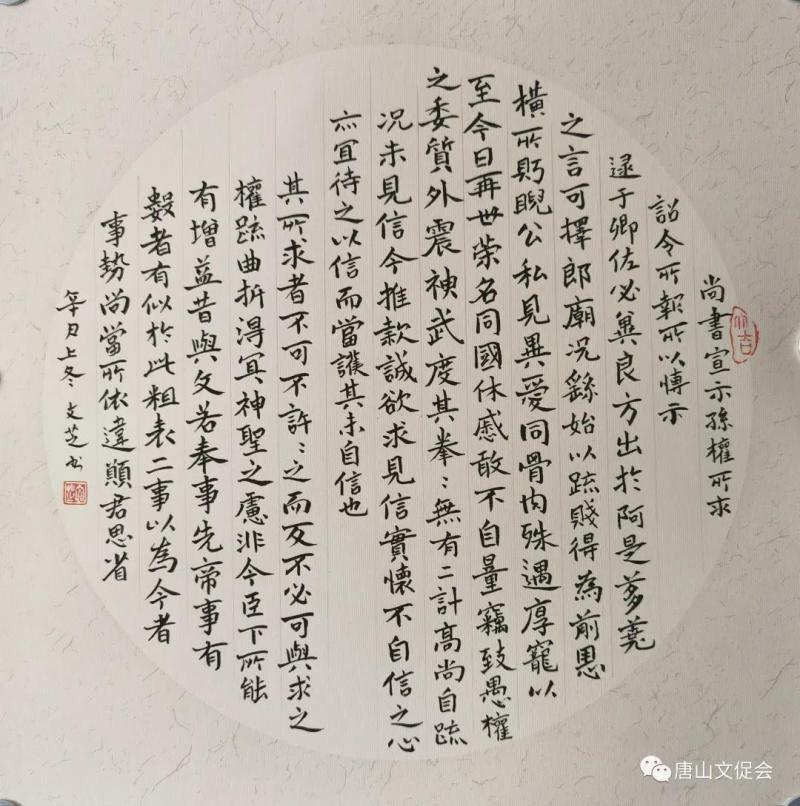 尚書宣示孫權所求
詔令所報所以博示
逮于卿佐必冀良方出於阿是芻蕘
之言可擇郎廟況繇始以疏賤得為前恩
橫所眄睨公私見異愛同骨肉殊遇厚寵以
至今日再世榮名同國休慼敢不自量竊致愚權
之委質外震神武度其拳：無有二計高尚自疏
況未見信今推款誠欲求見信實懷不自信之心
亦宜待之以信而當護其未自信也
其所求者不可不許：之而反不必可與求之
權疏曲折得宜神聖之慮非今臣下所能
有增益昔與文若奉事先帝事有
數者有似於此粗表二事以為今者
事勢尚當所依違願君思省
辛丑上冬文芝书
唐山文促会